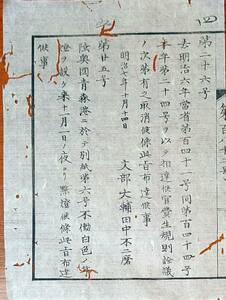 第二十六号
去明治六年當省第百四十一号同第百四十四号
本年第二十四号ヲ以テ相達候官費生規則詮議
ノ次第有之取消候條此旨布達候事
明治七年十月十四日
文部大輔田中不二麿
第廿五号
陸奥國青森港ニ於テ別紙第六号不動白色ノ
燈ヲ設ケ来十一月一日ノ夜ヨリ點燈候條此旨布達
候事